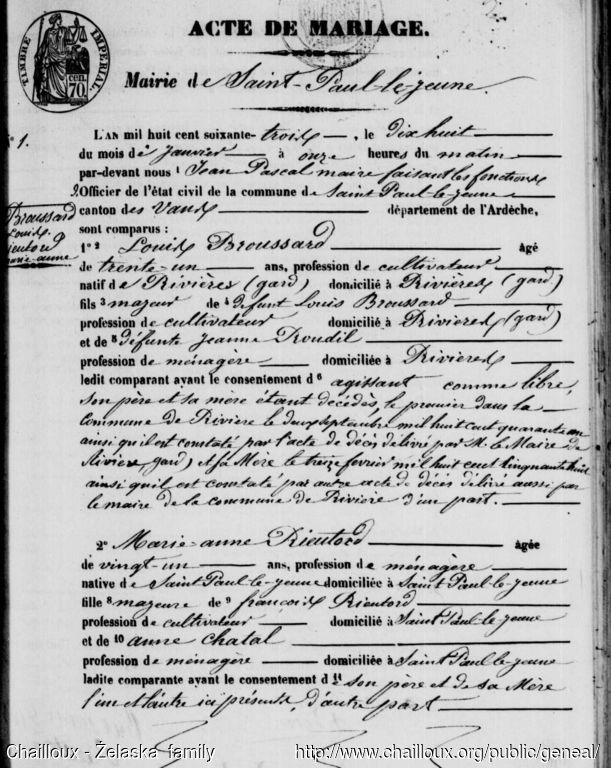 TIMBRE IMPERIAL
cen.
70.
ACTE DE MARIAGE.
Mairie de Saint-Paul-le-jeune.
1.
L'AN mil huit cent soixante-trois, le dix huit
du mois de Janvier à onze heures du matin
par-devant nous 1 Jean Pascal maire faisant les fonctions
d'Officier de l'état civil de la commune de Saint Paul le jeune
canton des Vans département de l'Ardèche,
Broussard
Louis
Rieutord
marie-anne
sont comparus :
1° 2 Louis Broussard âgé
de trente-un ans, profession de cultivateur
natif de Rivières (gard) domicilié à Rivières (gard)
fils 3 majeur de 4 défunt Louis Broussard
profession de cultivateur domicilié à Rivières (gard)
et de 5 défunte jeanne Roudil
profession de ménagère domiciliée à Rivieres
ledit comparant ayant le consentement d 6 agissant comme libre,
son père et sa mère étant décédés, le premier dans la
commune de Riviere le deux septembre mil huit cent quarante un
ainsi qu'il est constaté par l'acte de décès délivré par M. le Maire de
Rivière, gard) et sa Mère le treize fevrier mil huit cent cinquante huit
ainsi qu'il est constaté par autre acte de décès délivré aussi par
le maire de la commune de Rivière d'un part.
2° Marie-anne Rieutord âgée
de vingt-un ans, profession de ménagère
native de Saint Paul-le-jeune domiciliée à Saint Paul-le-jeune
fille 8 majeure de 9 françois Rieutord
profession de cultivateur domicilié à Saint Paul-le-jeune
et de 10 anne chatal
profession de ménagère domiciliée à Saint Paul-le-jeune
ladite comparante ayant le consentement d 11 e son père et de sa Mère
l'un et l'autre ici présents d'autre part
Chailloux - Želaska family http://www.chailloux.org/public/geneal/